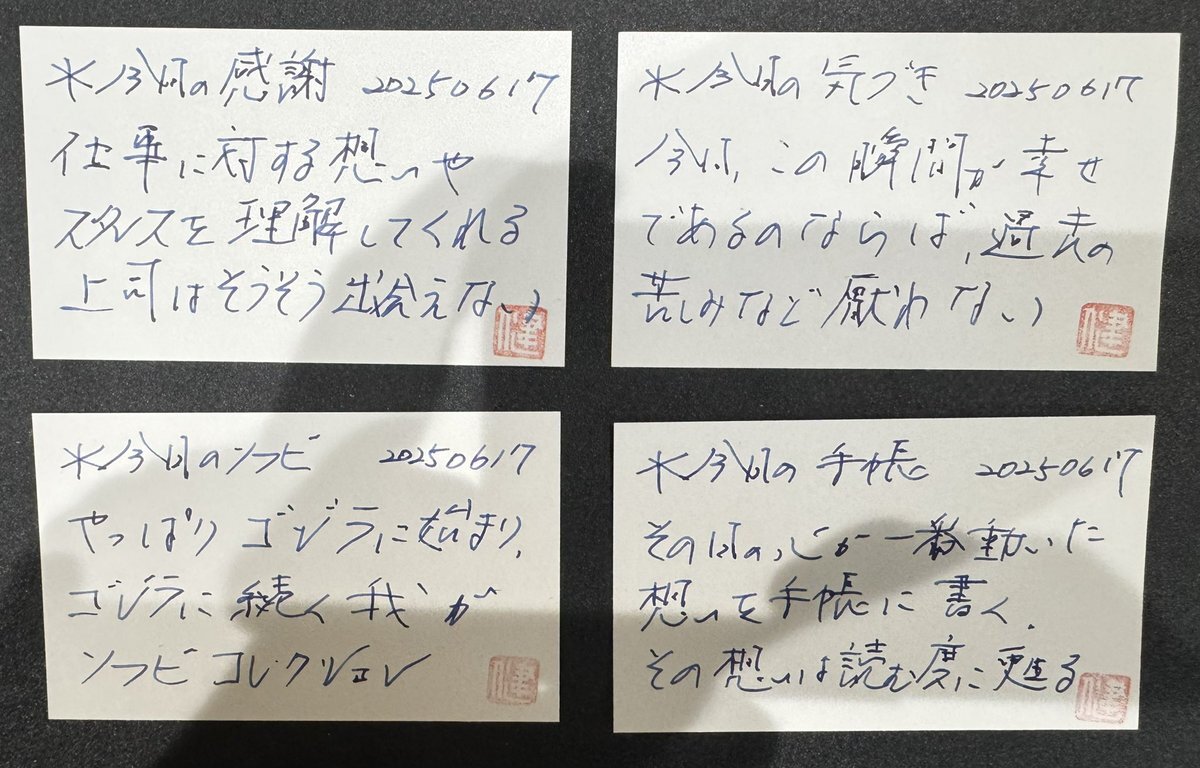 *今日の感謝 20250617
仕事に対する想いや
スタンスを理解してくれる
上司はそうそう出会えない
健
*今日の気づき 20250617
今日、この瞬間が幸せ
であるのならば、過去の
苦しみなど厭わない
健
*今日のソフビ 20250617
やっぱりゴジラに始まり、
ゴジラに続く我が
ソフビコレクション
健
*今日の手帳 20250617
その日の心が一番動いた
想いを手帳に書く。
その想いは読む度に甦る
健